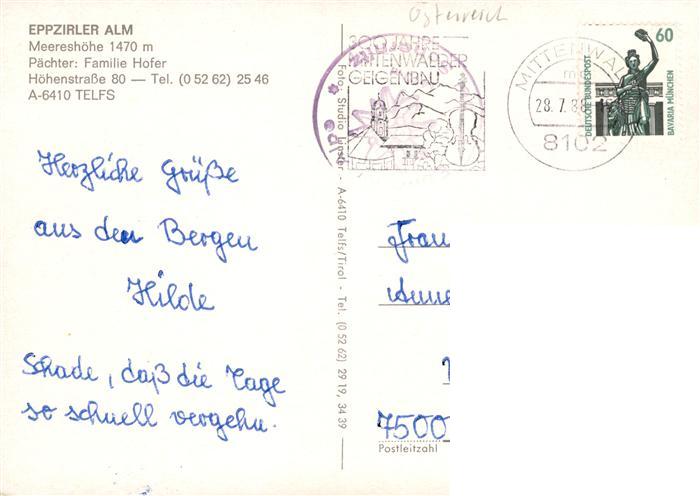 Österreich
EPPZIRLER ALM
Meereshöhe 1470 m
Pächter: Familie Hofer
Höhenstraße 80 — Tel. (0 52 62) 25 46
A-6410 TELFS
300 JAHRE
MITTENWALDER
GEIGENBAU
MITTENWAL
28.7.88
8102
60
DEUTSCHE BUNDESPOST
BAVARIA MÜNCHEN
Foto Studio Linster - A-6410 Telfs/Tirol - Tel. (0 52 62) 29 19, 34 39
Herzliche Grüße
aus den Bergen
Hilde
Schade, daß die Tage
so schnell vergehn.
Frau
Anne
7500
Postleitzahl